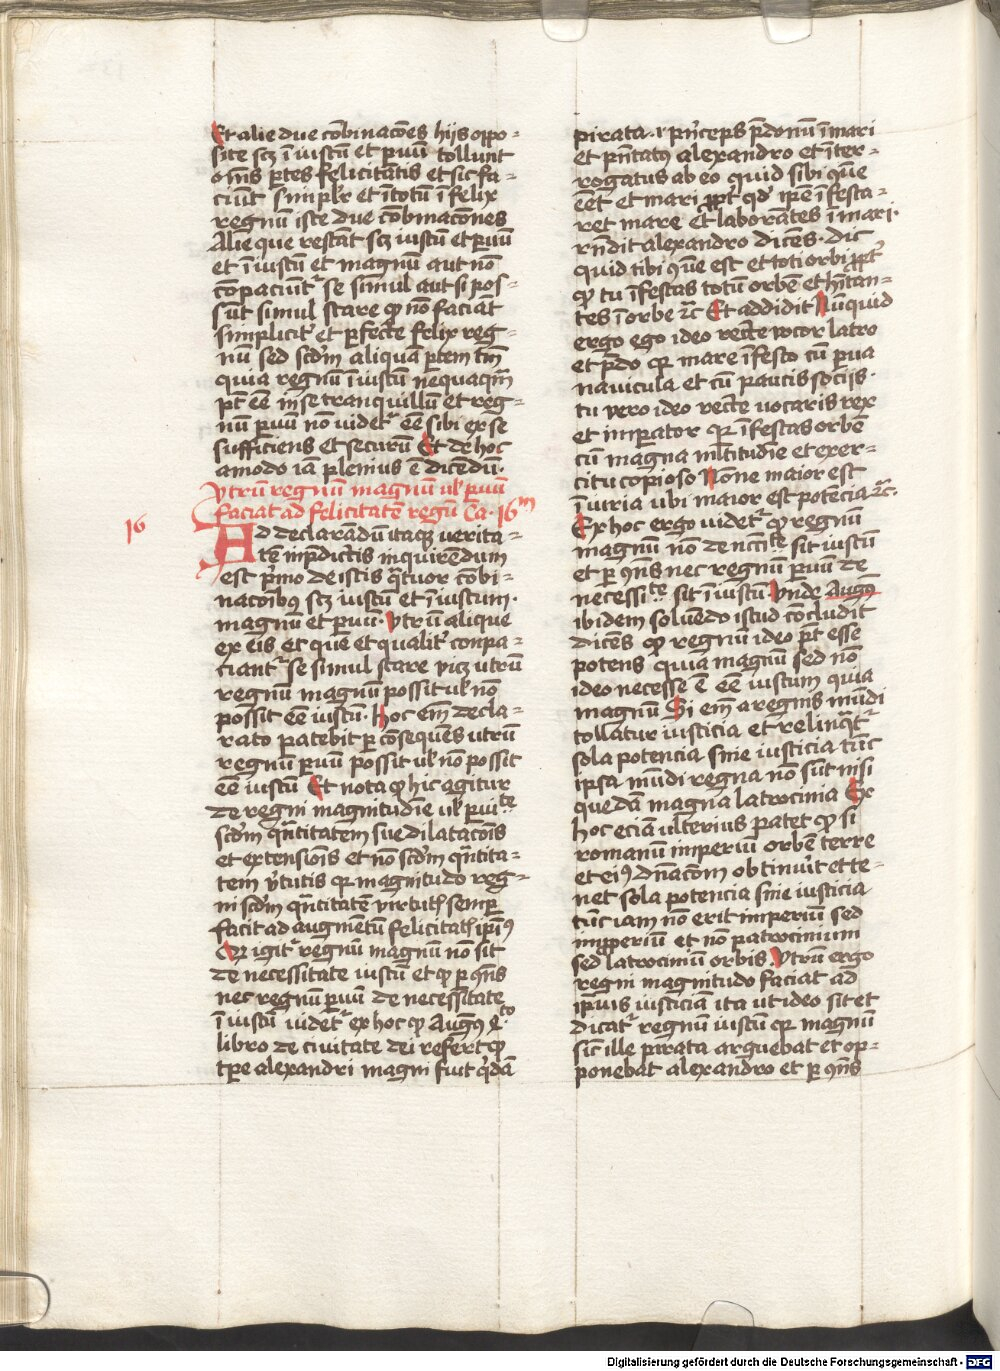 Et alie due cōbinacōes hijs oppo-
site scʒ īiustū et ꝑuū tollunt
oīns ꝑtes felicitatis et sic fa-
ciūt simplr̄ et ītotū īfelix
regnū iste due cōbinacōnes
Alie que restāt scʒ iustū et ꝑuū
et īiustū et magnū aut nō
cōpaciūt᷑ se simul aut si pos-
sūt simul stare ꝙ nō faciāt
simplicit᷑ et ꝑfecte felix reg-
nū sed scdm̄ aliquā ꝑtem tm̄
quia regnū īiustū neq̄uaqm̄
pt̄ eē in se tranquillū et reg-
nū ꝑuū nō videt᷑ eē sibi ex se
sufficiens et securū Et de hoc
amodo iā plenius ē dicēdū.
Vtrū regnū magnū ul̄ ꝑuū
faciat ad felicitatē regnū Ca. 16ᵐ
16
Ad declarādū itaqʒ verita-
tē in p̄dictis inquirēdum
est p̄mo de istis q̄tuor cōbi-
nacōibꝰ scʒ iustū et īiustum.
magnū et ꝑuū. Vtrū alique
ex eis et que et qualit᷑ conpa-
ciant᷑ se simul stare vicʒ utrū
regnū magnū possit ul̄ nō
possit eē iustū. Hoc em̄ decla-
rato patebit ꝑ cōsequēs utrū
regnū ꝑuū possit ul̄ nō possit
eē iustū Et nota ꝙ hic agitur
de regni magnitudīe ul̄ ꝑuiᵗᵉ
scdm̄ qn̄titatem sue dilatacōis
et extensiōis et nō scdm̄ qn̄tita-
tem v̄tutis qꝛ magnitudo reg-
ni scdm̄ qn̄titatē virtutis semꝑ
facit ad augmētū felicitatis ip̄iꝰ
Qꝛ igit᷑ regnū magnū nō sit
de necessitate iustū et ꝙ ꝑ qn̄s
nec regnū ꝑuū de necessitate
īiustū videt᷑ ex hoc ꝙ Augꝰ 4ᵗᵒ
libro de ciuitate dei refert ꝙ
tꝑe alexandri magni fuit q̄dā
pirata .i. pn̄ceps p̄donū ī mari
et pn̄tatus alexandro et īter-
rogatus ab eo quid sibi q̄ue
eēt et mari ꝓpt᷑ qd̄ ip̄e īfesta-
ret mare Et laborātes ī mari.
rn̄dit alexandro dicēs. dic
quid tibi q̄ue est et toti orbi ꝓpt᷑
ꝙ tu īfestas totū orbē et hītan-
tes ī orbe ⁊c̄ Et addidit Nūquid
ergo ego ideo recte vocor latro
et p̄do qꝛ mare īfesto cū ꝑua
nauicula et cū paucis socijs.
tu vero ideo recte uocaris rex
et imperator qꝛ īfestas orbē
cū magna ml̄titudīe et exer-
citu copioso Nōne maior est
īiuria ubi maior est potēcia ⁊c̄.
Ex hoc ergo uidet᷑ ꝙ regnū
magnū nō de nccīᵗᵉ sit iustū
et ꝑ qn̄s nec regnū ꝑuū de
necessiᵗᵉ sit īiustū Vnde Augꝰ
ibidem soluēdo istud cōcludit
dicēs ꝙ regnū ideo pt̄ esse
potens quia magnū sed nō
ideo necesse ē eē iustum quia
magnū Si em̄ a regnis mūdi
tollatur iusticia et relinq̄t᷑
sola potencia sine iusticia tūc
ipsa mūdi regna nō sūt nisi
quedā magna latrocinia Ex
hoc eciā ulterius patet ꝙ si
romanū imperiū orbē terre
et eiꝰ dn̄acōm obtinuīt et te-
net sola potencia sine iusticia
tūc iam nō erit imperiū sed
impperiū et nō patrocinium
sed latrociniū orbis. Vtrū ergo
regni magnitudo faciat ad
ip̄ius iusticiā ita ut ideo sit et
dicat᷑ regnū iustū qꝛ magnū
sic ille pirata arguebat et op-
ponebat alexandro et ꝑ qn̄s
Digitalisierung gefördert durch die Deutsche Forschungsgemeinschaft - DFG